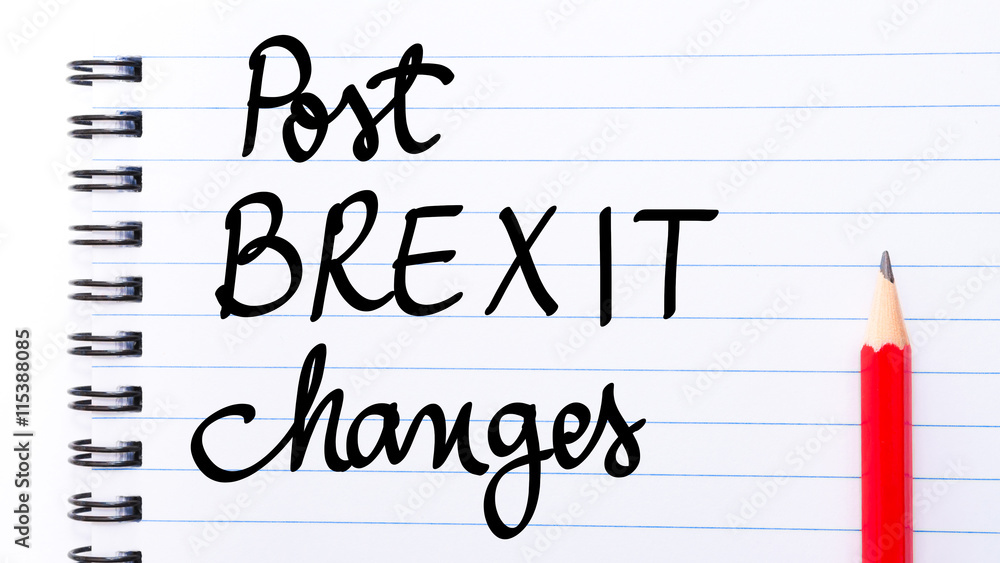 Post
BREXIT
changes
Adobe Stock | #115388085